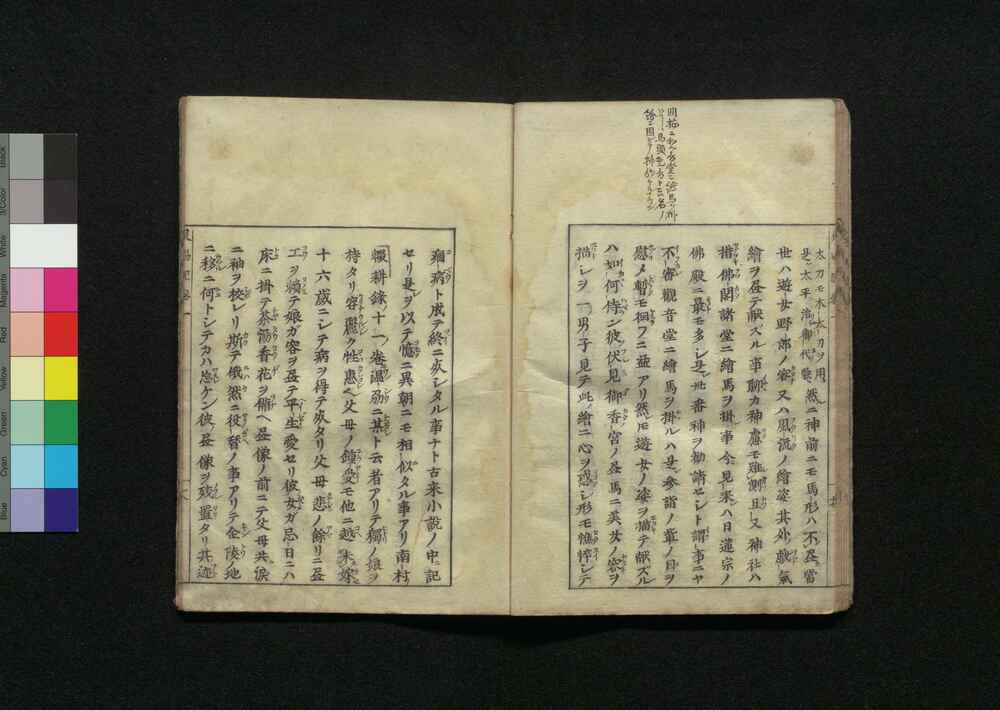 太刀モ木ノ太刀ヲ用
是太平治御代
然ニ神前ニモ馬形ハ不昼當
世ハ遊女野郎ノ容又ハ風流ノ繪姿其外戯氣
繪ヲ昼テ献ズル事聊カ神慮モ難測且又神社ハ
措佛閣諸堂ニ繪馬ヲ掛事今見来ハ日蓮宗ノ
佛殿ニ最モ多シ是卅番神ヲ勧請セシト謂事ニヤ
不審觀音堂ニ繪馬ヲ掛ルハ是参詣ノ輩ノ目ヲ
慰メ暫モ徊フニ益アリ然モ遊女ノ姿ヲ描テ献ズル
ハ如何侍ン彼伏見御香宮ノ昼馬ニ美女ノ容ヲ
描シヲ一男子見テ此ノ繪ニ心ヲ惑シ形モ憔悴シテ
痾病ト成テ終ニ死シタル事ナト古来小説ノ中ニ記
セリ是ヲ以テ憶ニ異朝ニモ相似タル事アリ南村
輟耕録十一巻温州ニ某ト云者アリテ獨ノ娘ヲ
持タリ容麗ク性惠ヘ父母ノ鍾愛モ他ニ越未嫁
十六歳ニシテ病ヲ得テ死タリ父母悲ノ餘リニ昼
工ヲ頼テ娘ガ容ヲ昼テ平生愛セリ彼女ガ忌日ニハ
床ニ掛テ茶湯香花ヲ備ヘ昼像ノ前ニテ父母共涙
ニ袖ヲ校レリ斯テ俄然ニ役替ノ事アリテ金陵ノ地
ニ移ニ何トシテカハ忘ケン彼昼像ヲ残置タリ其迹